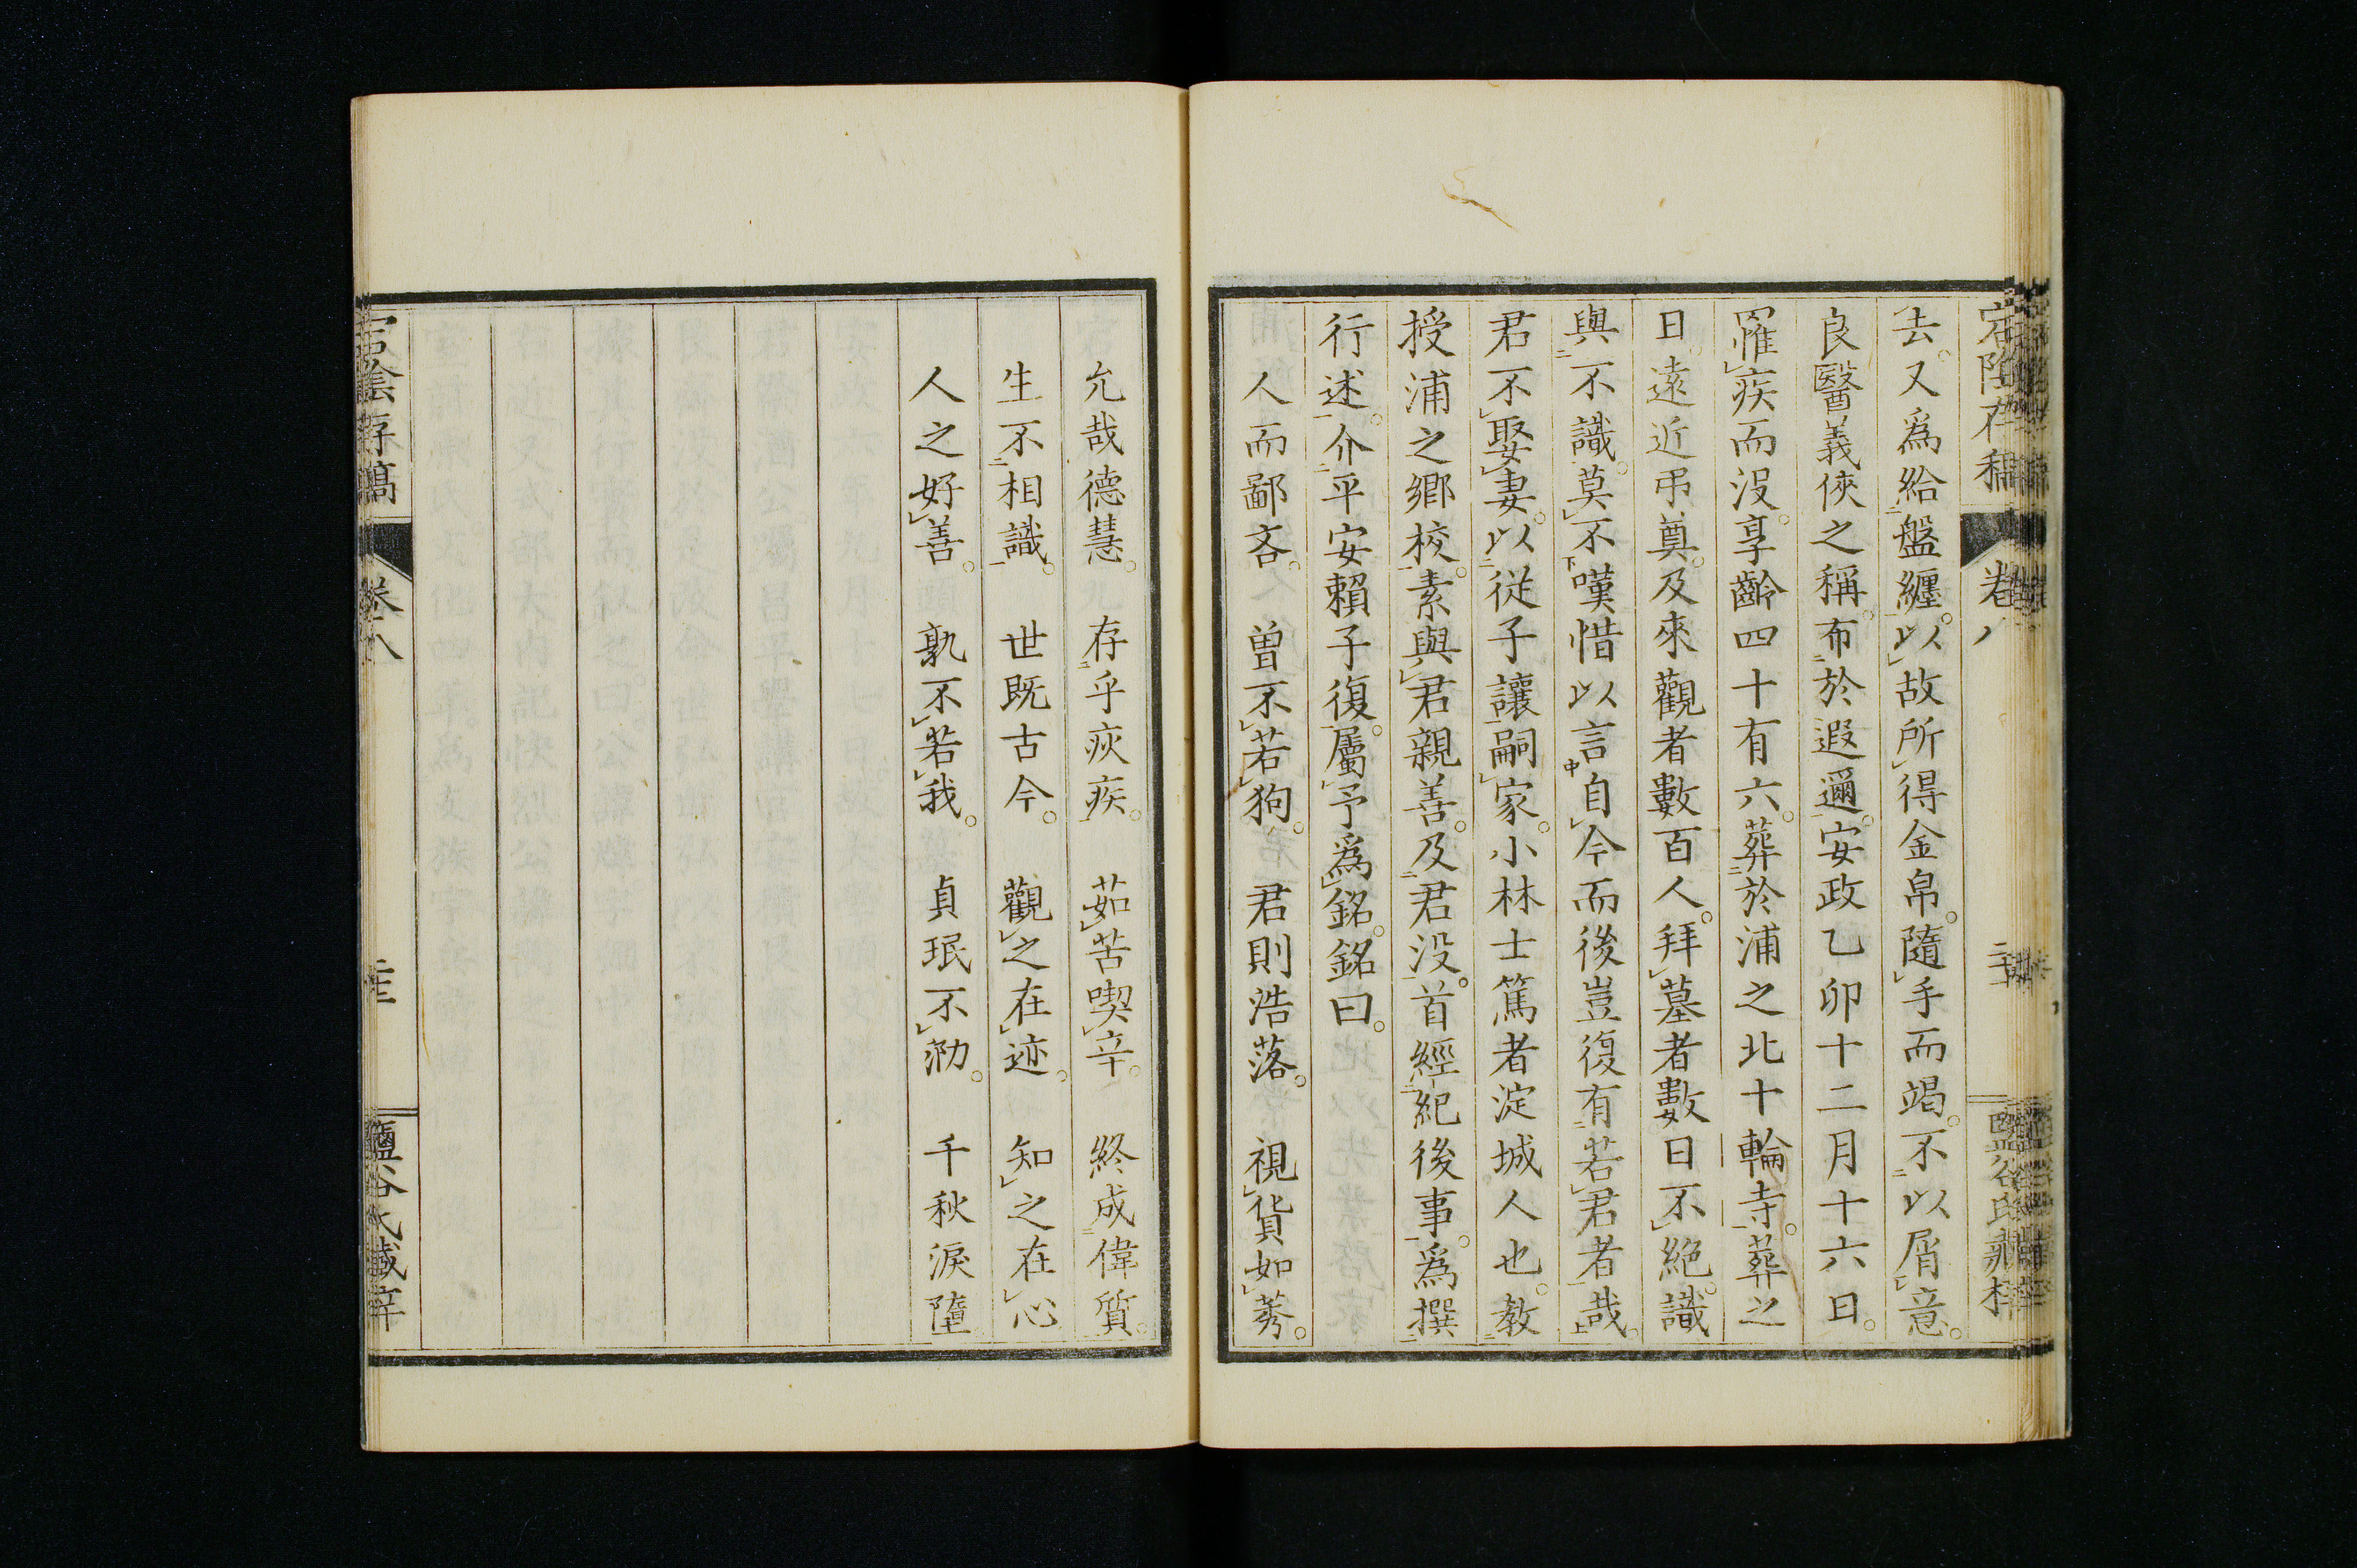 去。又爲給盤纏。以故所得金帛。隨手而竭。不以屑意。
良醫義俠之稱。布於遐邇。安政乙卯十二月十六日。
罹疾而沒。享齡四十有六。葬於浦之北十輪寺。葬之
日。遠近弔奠。及來觀者數百人。拜墓者數日不絕。識
與不識。莫不嘆惜以言自今而後豈復有若君者哉。
君不娶妻。以從子讓嗣家。小林士篤者淀城人也。教
授浦之鄉校。素與君親善。及君没。首經紀後事。爲撰
行述。介平安賴子復。屬予爲銘。銘曰。
人而鄙吝。 曽不若狗。 君則浩落。 視貨如莠。
允哉德慧。 存乎疢疾。 茹苦喫辛。 終成偉質。
生不相識。 世既古今。 觀之在迹。 知之在心
人之好善。 孰不若我。 貞珉不泐。 千秋淚墮
宕陰存稿 卷八 鹽谷氏藏梓